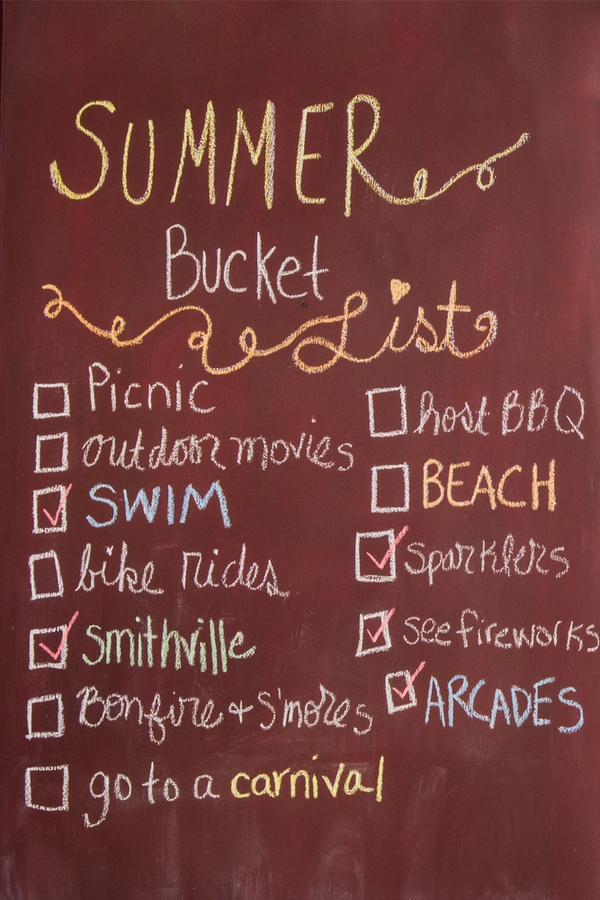 SUMMER
Bucket
List
Picnic
outdoor movies
SWIM
bike rides
smithville
Bonfire + S'mores
go to a carnival
host BBQ
BEACH
sparklers
see fireworks
ARCADES